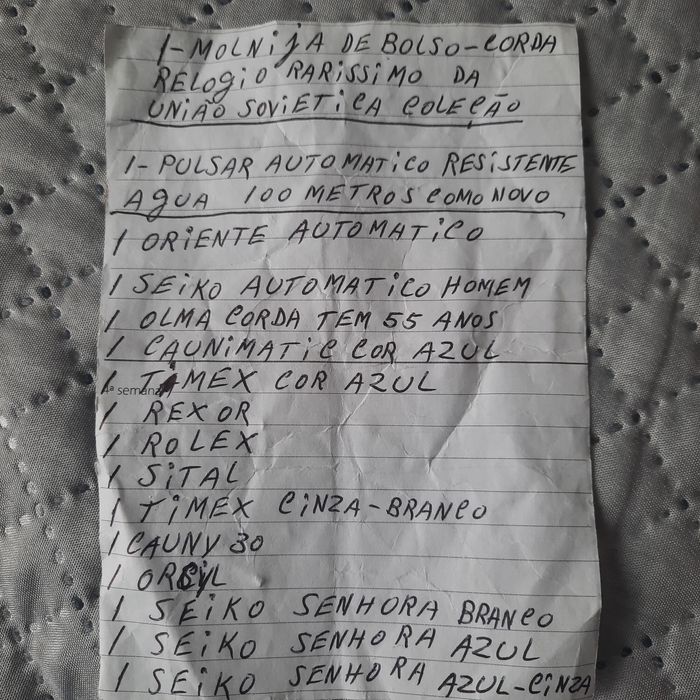 1-MOLNijA DE BOLSO-CORDA
RELOgiO RARISSIMO DA
UNIÃO SOVIETICA COLEÇÃO
1- PULSAR AUTOMATICO RESISTENTE
AgUA 100 METROS COMO NOVO
1 ORIENTE AUTOMATICO
1 SEIKO AUTOMATICO HOMEM
1 OLMA CORDA TEM 55 ANOS
1 CAUNIMATIC COR AZUL
1 TIMEX COR AZUL
4ª semana
1 REXOR
1 ROLEX
1 SITAL
1 TIMEX CINZA-BRANCO
1 CAUNY 30
1
1 SEIKO SENHORA BRANCO
1 SEIKO SENHORA AZUL
1 SEIKO SENHORA AZUL-CINZA